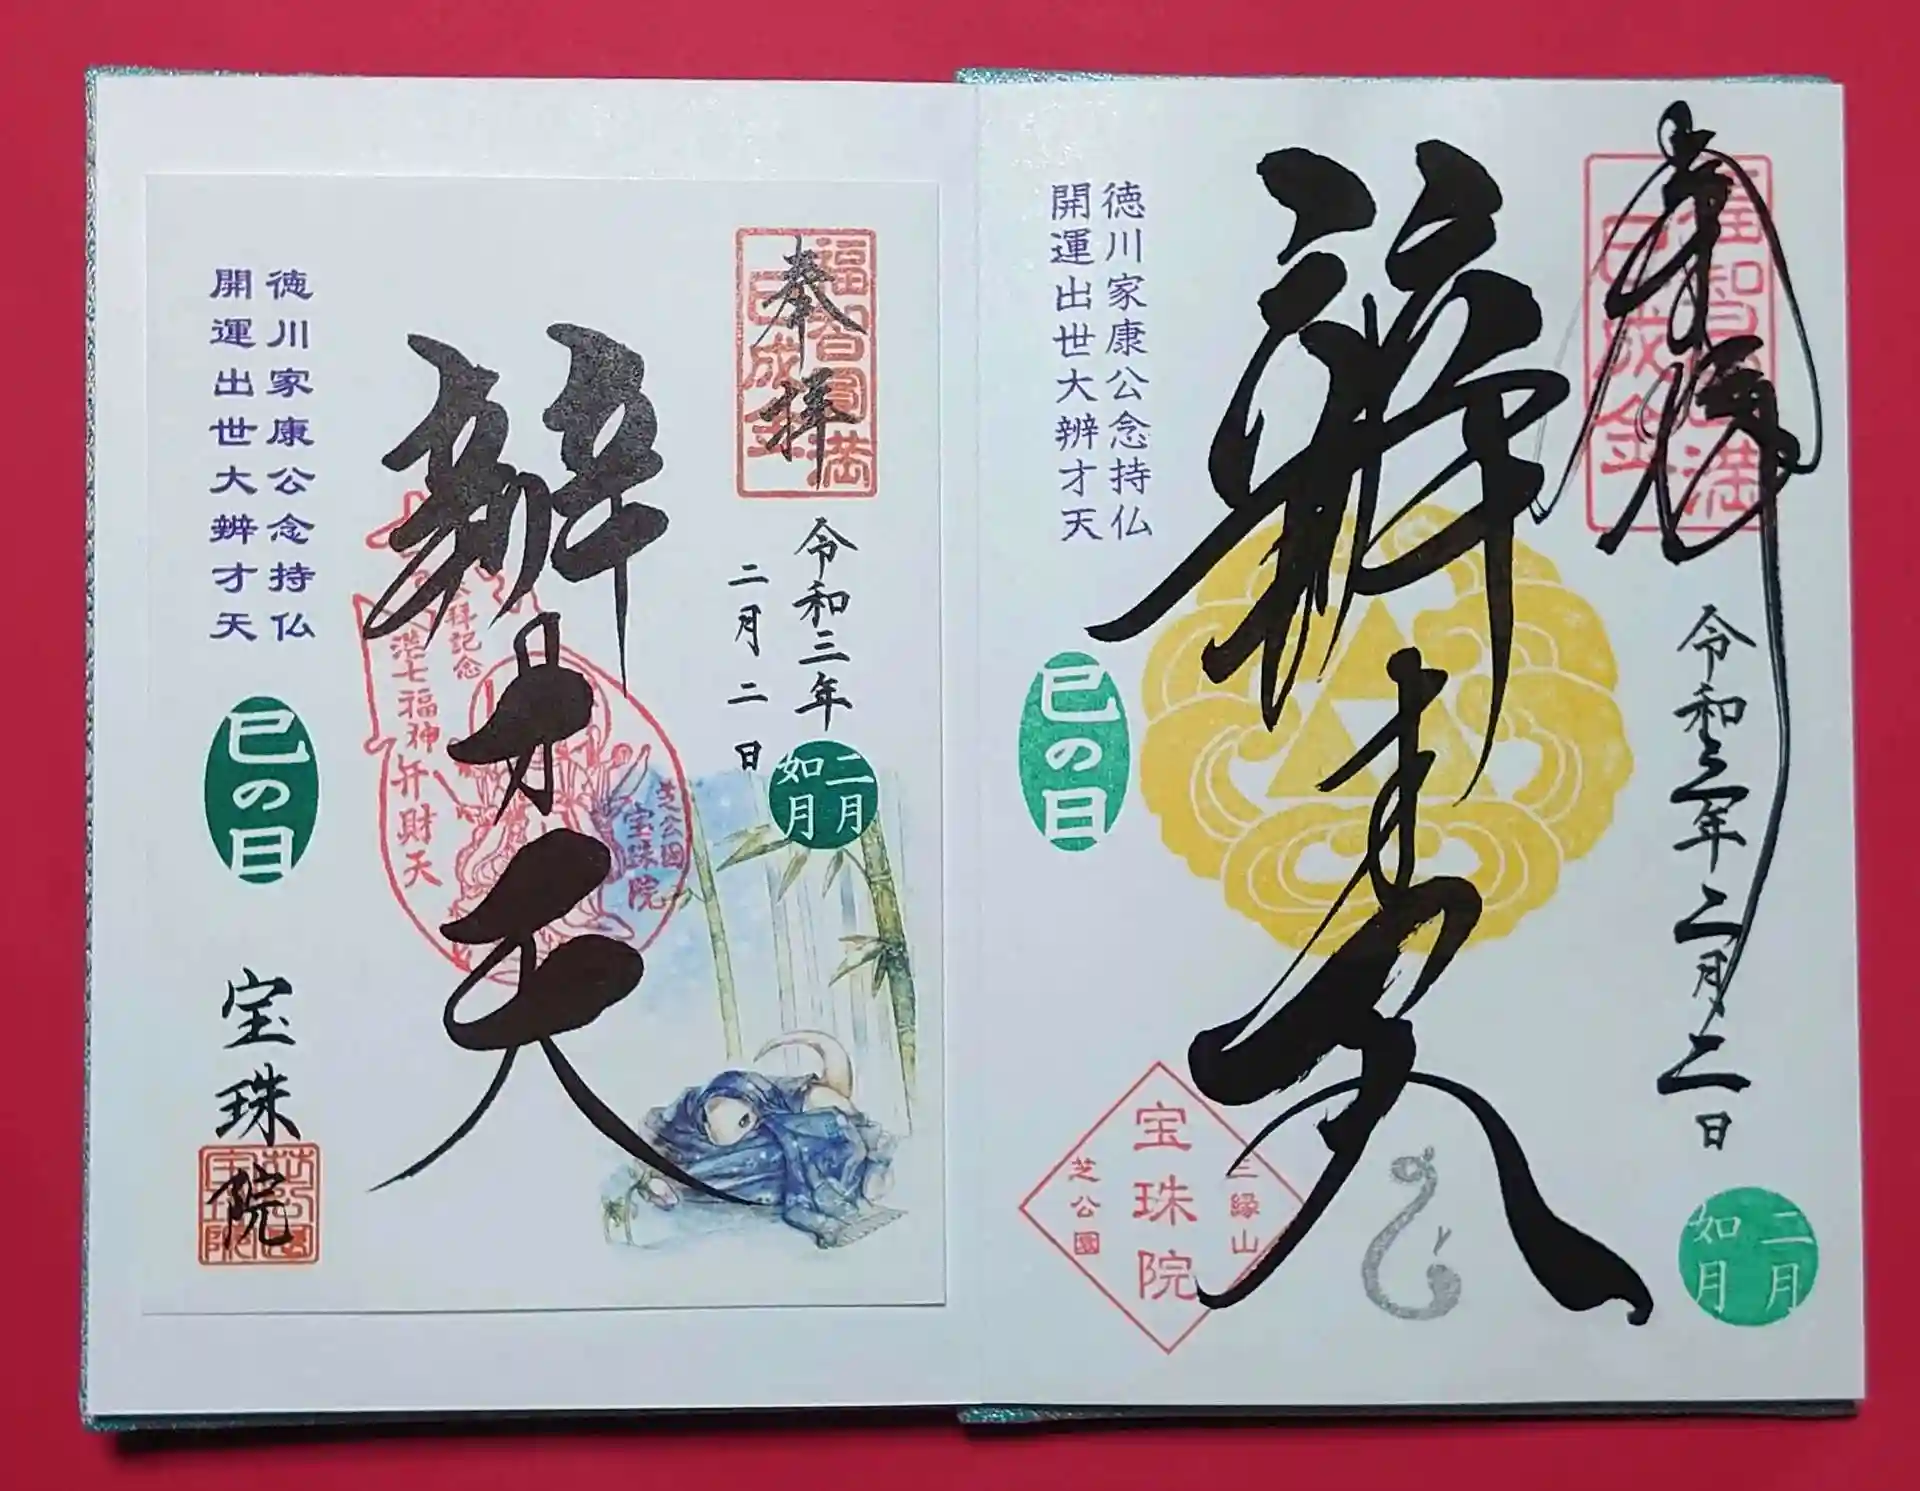 奉拝
福智圓満
巳成金
令和三年二月二日
二月
如月
辨才天
徳川家康公念持仏
開運出世大辨才天
巳の日
三縁山
宝珠院
芝公園
奉拝
福智圓満
巳成金
令和三年
二月二日
二月
如月
辨才天
芝公園
宝珠院
拝記念
港七福神弁財天
徳川家康公念持仏
開運出世大辨才天
巳の日
宝珠院